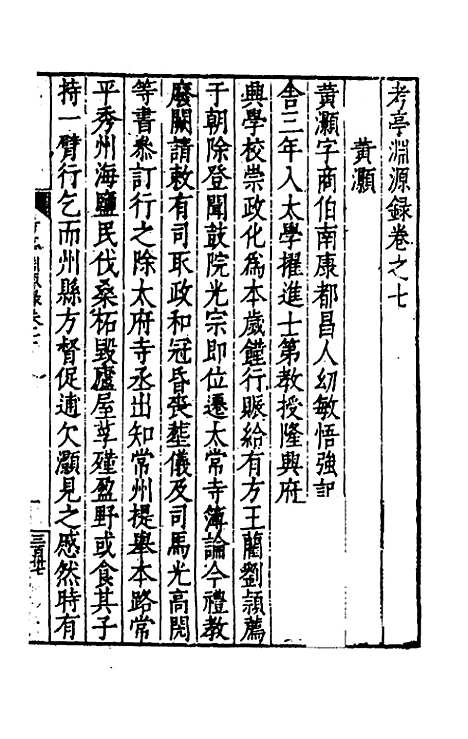 考亭淵源録卷之七
黄灝
黄灝字商伯南康都昌人幼敏悟強記
舎三年入太學擢進士第教授隆興府
興學校崇政化爲本歲饉行賑給有方王藺劉頴薦
于朝除登聞鼓院光宗即位遷太常寺簿論今禮教
廢闕請敕有司取政和冠昏喪塟儀及司馬光髙閌
等書叅訂行之除太府寺丞出知常州提舉本路常
平秀州海鹽民伐桑柘毀廬屋莩殣盈野或食其子
持一臂行乞而州縣方督促逋欠灝見之慼然時有